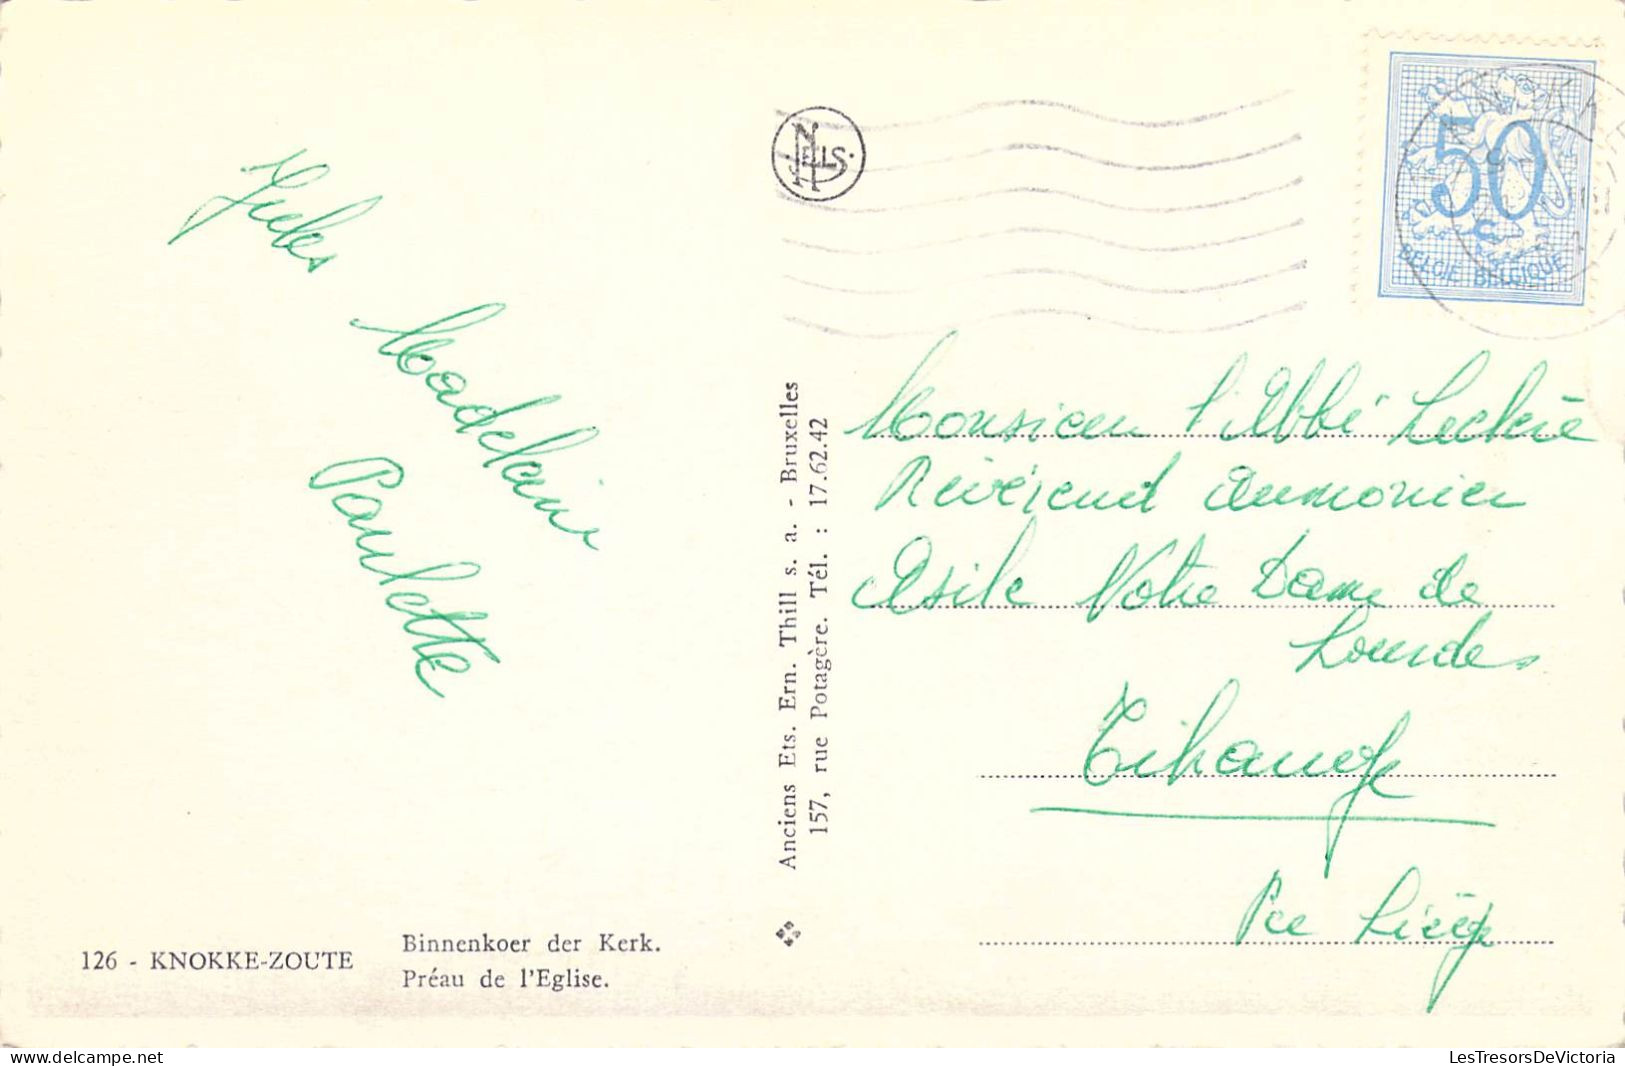 Jules
Madeleine
Paulette
126 - KNOKKE-ZOUTE
Binnenkoer der Kerk.
Préau de l'Eglise.
Anciens Ets. Ern. Thill s. a. - Bruxelles
157, rue Potagère. Tél. : 17.62.42
NELS
50
c
BELGIE BELGIQUE
Monsieur l'Abbé Leclère
Révérend aumonier
Asile Notre Dame de
Lourdes
Tihange
Pce Liège
LesTresorsDeVictoria